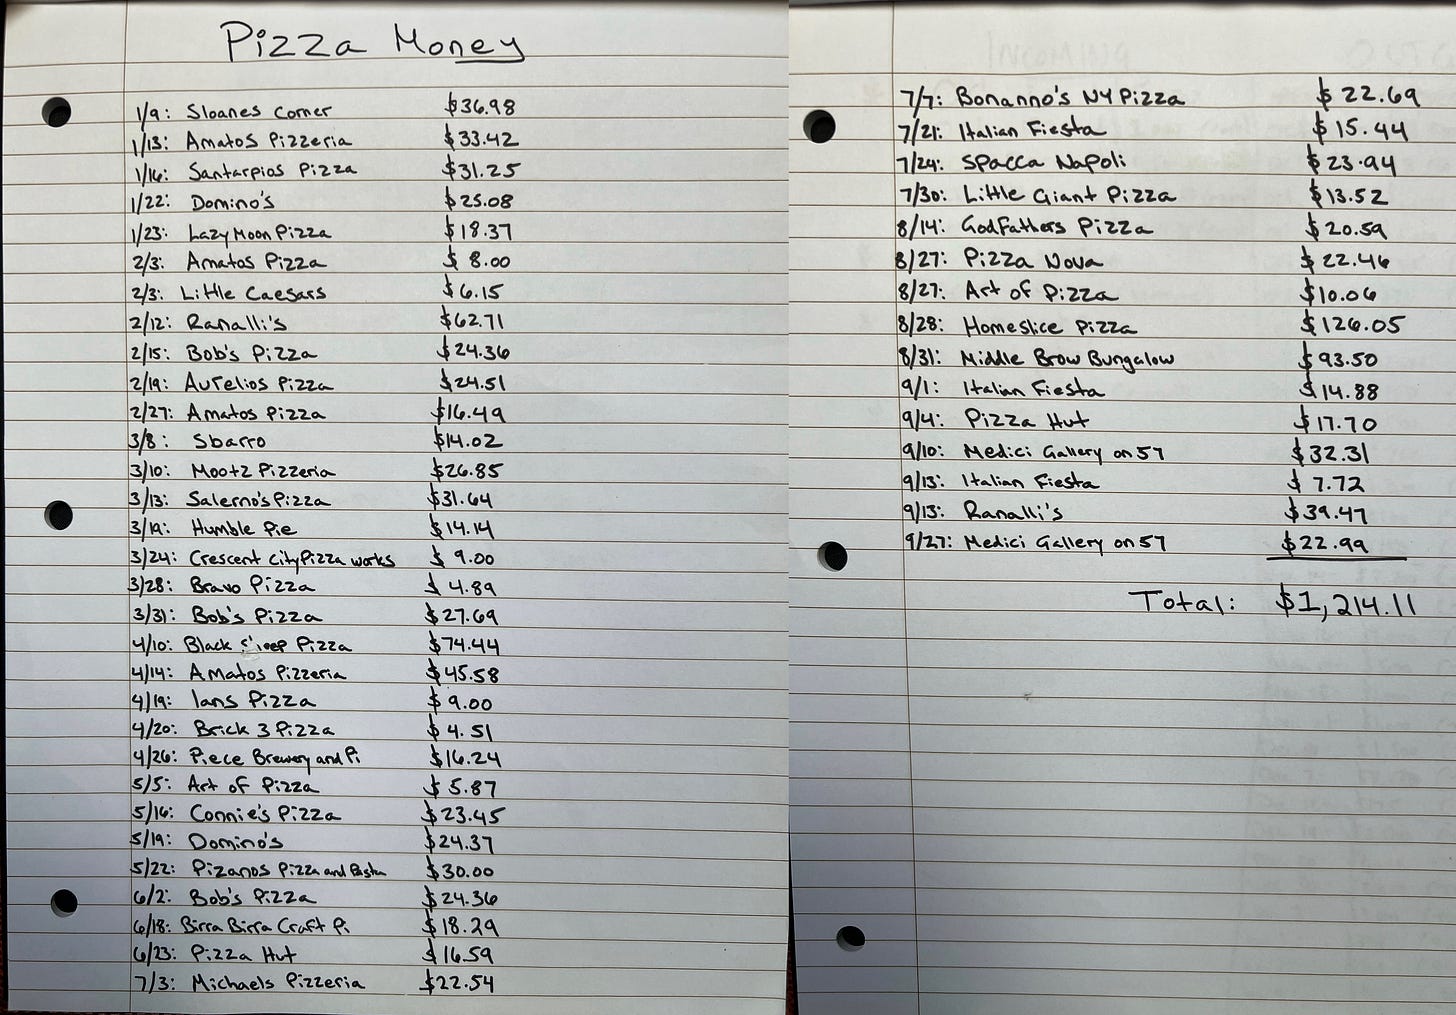 Pizza Money
1/9: Sloanes Corner $36.98
1/13: Amatos Pizzeria $33.42
1/16: Santarpios Pizza $31.25
1/22: Domino's $25.08
1/23: Lazy Moon Pizza $18.37
2/3: Amatos Pizza $8.00
2/3: Little Caesars $6.15
2/12: Ranalli's $62.71
2/15: Bob's Pizza $24.36
2/19: Aurelios Pizza $24.51
2/27: Amatos Pizza $16.49
3/8: Sbarro $14.02
3/10: Mootz Pizzeria $26.85
3/13: Salerno's Pizza $31.64
3/19: Humble Pie $14.14
3/24: Crescent City Pizza works $9.00
3/28: Bravo Pizza $4.89
3/31: Bob's Pizza $27.69
4/10: Black Sheep Pizza $74.44
4/14: Amatos Pizzeria $45.58
4/19: Ians Pizza $9.00
4/20: Brick 3 Pizza $4.51
4/26: Piece Brewery and Pi $16.24
5/5: Art of Pizza $5.87
5/16: Connie's Pizza $23.45
5/19: Domino's $24.37
5/22: Pizanos Pizza and Pasta $30.00
6/2: Bob's Pizza $24.36
6/18: Birra Birra Craft Pi $18.29
6/23: Pizza Hut $16.59
7/3: Michaels Pizzeria $22.54
7/7: Bonanno's NY Pizza $22.69
7/21: Italian Fiesta $15.44
7/24: Spacca Napoli $23.94
7/30: Little Giant Pizza $13.52
8/14: Godfathers Pizza $20.59
8/27: Pizza Nova $22.46
8/27: Art of Pizza $10.06
8/28: Homeslice Pizza $126.05
8/31: Middle Brow Bungalow $93.50
9/1: Italian Fiesta $14.88
9/4: Pizza Hut $17.70
9/10: Medici Gallery on 57 $32.31
9/13: Italian Fiesta $7.72
9/13: Ranalli's $39.47
9/27: Medici Gallery on 57 $22.99
Total: $1,214.11